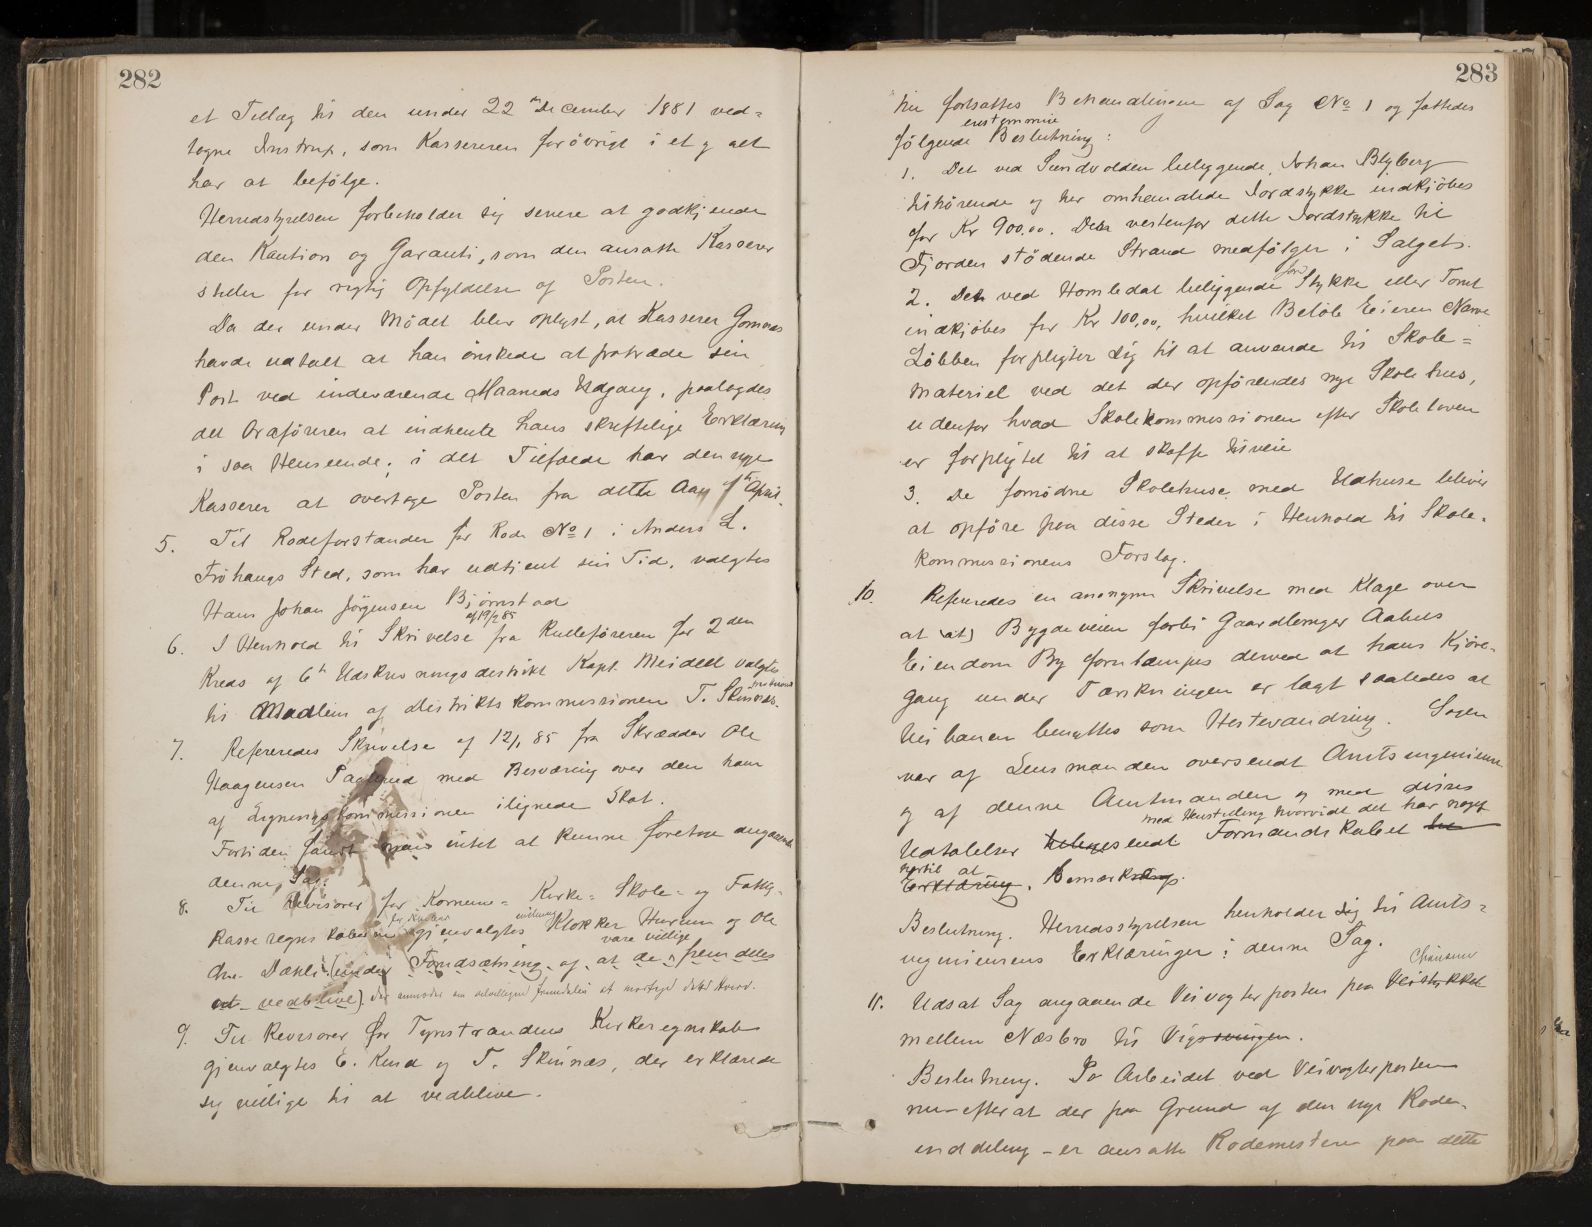 282
et Tillæg til den under 22 de December 1881 ved=
tagne Instrux, som Kassereren forövrigt i et og alt
har at befölge.
Herredstyrelsen forbeholder sig senere at godkjende
den Kaution og Garanti, som den ansatte Kasserer
stiller for rigtig Opfyldelse af Posten.
Da der under Mödet blev oplyst, at Kasserer Gomnæs
havde udtalt at han önskede at fratræde sin
Post ved indeværende Maaneds Udgang, paalagdes
det Ordföreren at indhente hans skriftelige Erklæring
i saa Henseende; i det Tilfælde har den nye
Kasserer at overtage Posten fra dette Aars 1ste April.
5. Til Rodeforstander for Rode No 1 i Anders L.
Fröhaugs Sted, som har udtjent sin Tid, valgtes
Hans Johan Jörgensen Björnstad
6. I Henhold til Skrivelse af 19/2 85 fra Rulleföreren for 2den
Kreds af 6te Udskrivningsdistrikt Kapt. Meidell valgtes
til Medlem af Distriktskommissionen T. Skinnæs.
7. Refereredes Skrivelse af 12/1 85 fra Skrædder Ole
Haagensen med Besværing over den ham
af Ligningskommissionen ilignede Skat.
Fortiden fandt man intet at kunne foretage angaaende
denne Sag.
8. Til Revisorer for Kornem= Kirke= Skole= og Fattig=
kasseregnskaberne gjenvalgtes Klokker Hurum og Ole
Chr. Dæhli (under Forudsætning af at de vare villige fremdeles
at vedblive).
9. Til Revisorer for Tyristrandens Kirkeregnskab
gjenvalgtes E. Kind og T. Skinnæs, der erklærede
sig villige til at vedblive.
283
Nu fortsattes Behandlingen af Sag No 1 og fattedes
fölgende enstemmige Beslutning:
1. Det ved Sundvolden beliggende, Johan Blyberg
tilhörende og her omhandlede Jordstykke indkjöbes
for Kr 900,00. Den vestenfor dette Jordstykke til
Fjorden stödende Strand medfölger i Salget.
2. Det ved Homledal beliggende Jordstykke eller Tomt
indkjöbes for Kr 100,00, hvilket Belöb Eieren Narve
Löbben forpligter sig til at anvende til Skole=
materiel ved det der opförendes nye Skolehus,
udenfor hvad Skolekommissionen efter Skoleloven
er forpligtet til at skaffe tilveie
3. De fornödne Skolehuse med Udhuse bliver
at opföre paa disse Steder i Henhold til Skole=
kommissionens Forslag.
10. Refereredes en anonym Skrivelse med Klage over
at (at) Bygdeveien forbi Gaardbruger Aabus
Eiendom By forulæmpes derved at hans Kjöre=
gang under Tærskningen er lagt saaledes at
Veibanen benyttes som Hestevandring. Sagen
var af Lensmanden oversendt Amtsingeniøren
og af denne Amtmanden og med disses
Udtalelser tilbagesendt Formandskabet med Henstilling hvorvidt det har noget
hertil at
Erklæring. bemærke.
Beslutning. Herredsstyrelsen henholder sig til Amts=
ingeniørens Erklæringer i denne Sag.
11. Udsat Sag angaaende Veivogterposten paa Veistykket Chausseen
mellem Næsbro til Vigsvingen.
Beslutning. Da Arbeidet ved Veivogterposten
nu - efter at der paa Grund af den nye Rode=
inddeling - er ansatte Rodemestere paa dette